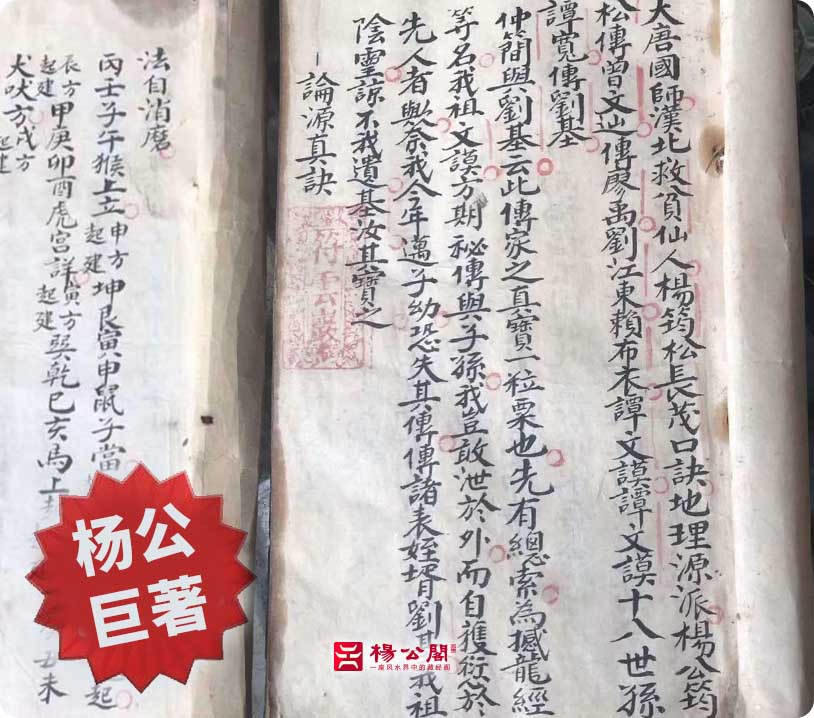 大唐國師漢北救貧仙人楊筠松長茂口訣地理源派楊公筠
松傳曾文辿傳廖禹劉江東賴布衣譚文謨譚文謨十八世孫
譚寬傳劉基
仲簡與劉基云此傳家之真寶一粒粟也先有總索為撼龍經
等名我祖文謨方期祕傳與子孫我豈敢泄於外而自獲愆於
先人者歟奈我今年邁子幼恐失其傳傳諸表姪壻劉基我祖
陰靈諒不我遺基汝其寶之
一論源真訣
法自消磨
丙壬子午猴上立申方起建坤艮寅申鼠子當起
辰方起建甲庚卯酉虎宮詳寅方起建巽乾巳亥馬上丑未
犬吠方戌方起建
杨公
巨著
楊公閣
一座风水界中的藏经阁